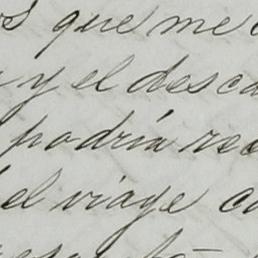 que me
y el desca
podría re
el viage co